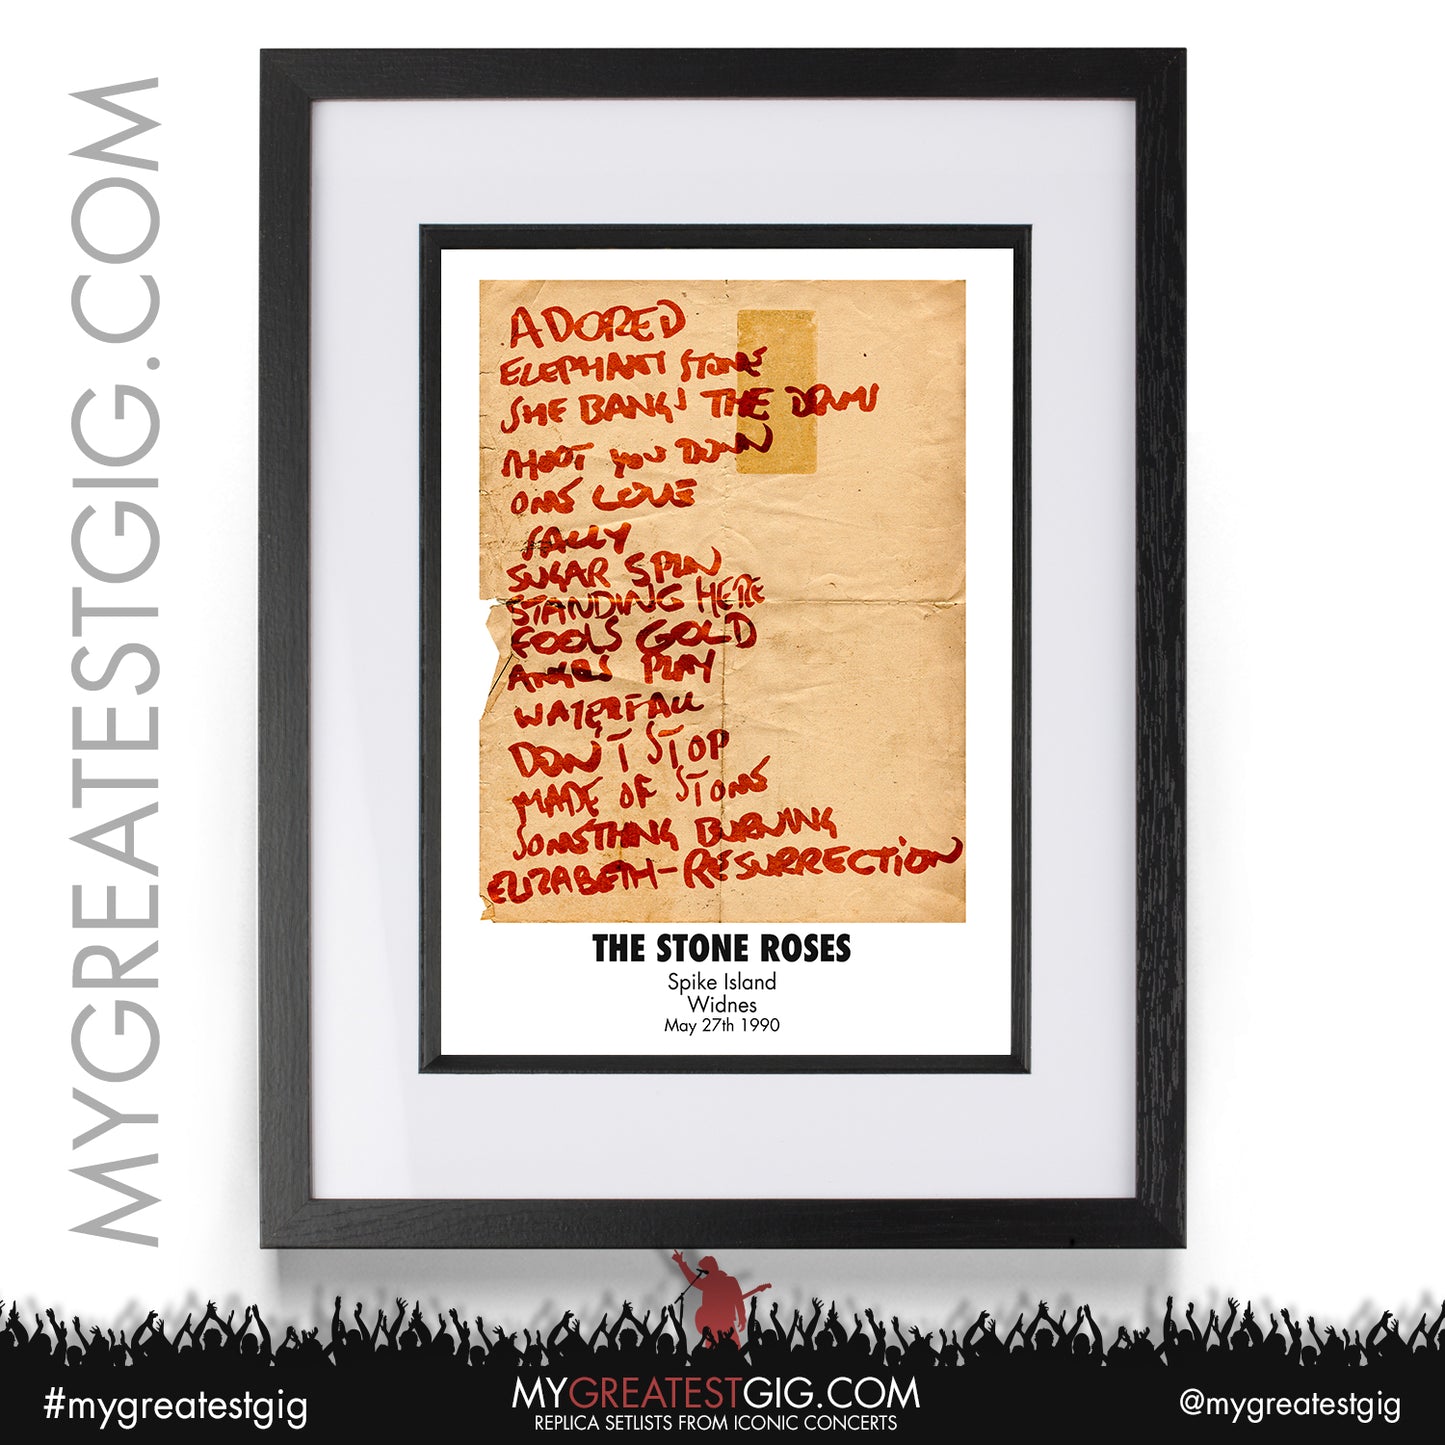 MYGREATESTGIG.COM
ADORED
ELEPHANT STONE
SHE BANGS THE DRUMS
SHOOT YOU DOWN
ONE LOVE
SALLY
SUGAR SPUN
STANDING HERE
FOOLS GOLD
ANGELS PLAY
WATERFALL
DON'T STOP
MADE OF STONE
SOMETHING BURNING
ELIZABETH-RESURRECTION
THE STONE ROSES
Spike Island
Widnes
May 27th 1990
#mygreatestgig
MYGREATESTGIG.COM
REPLICA SETLISTS FROM ICONIC CONCERTS
@mygreatestgig